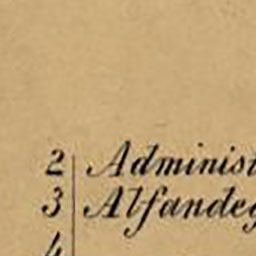 2 Administ
3 Alfandeg
4